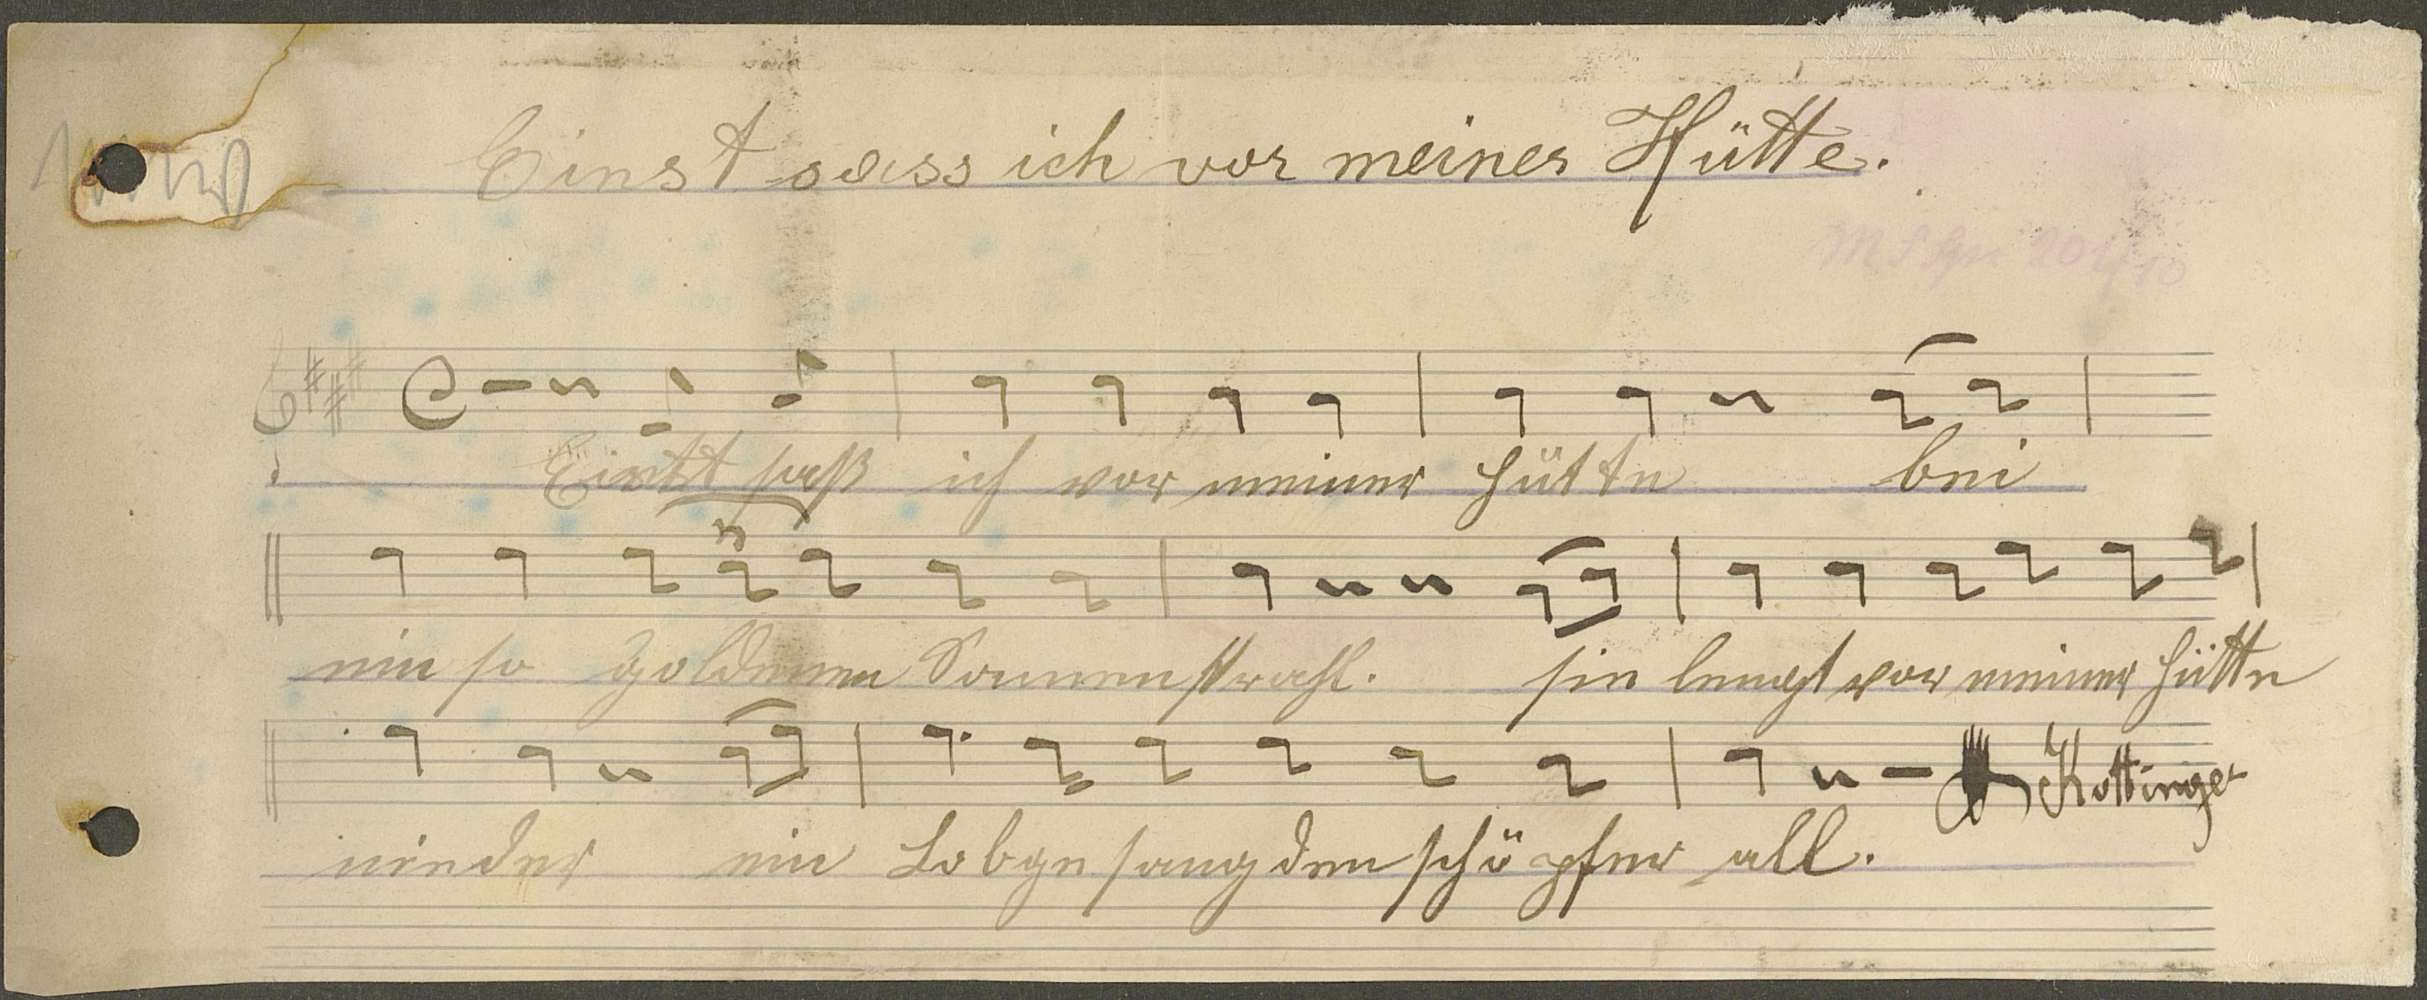 Einst sass ich vor meiner Hütte.
Einst saß ich vor meiner Hütte bei
ein so goldenen Sonnenstrahl. sie lengt vor meiner Hütte
nieder ein Lobgesang den schöpfer all.
Kottinger